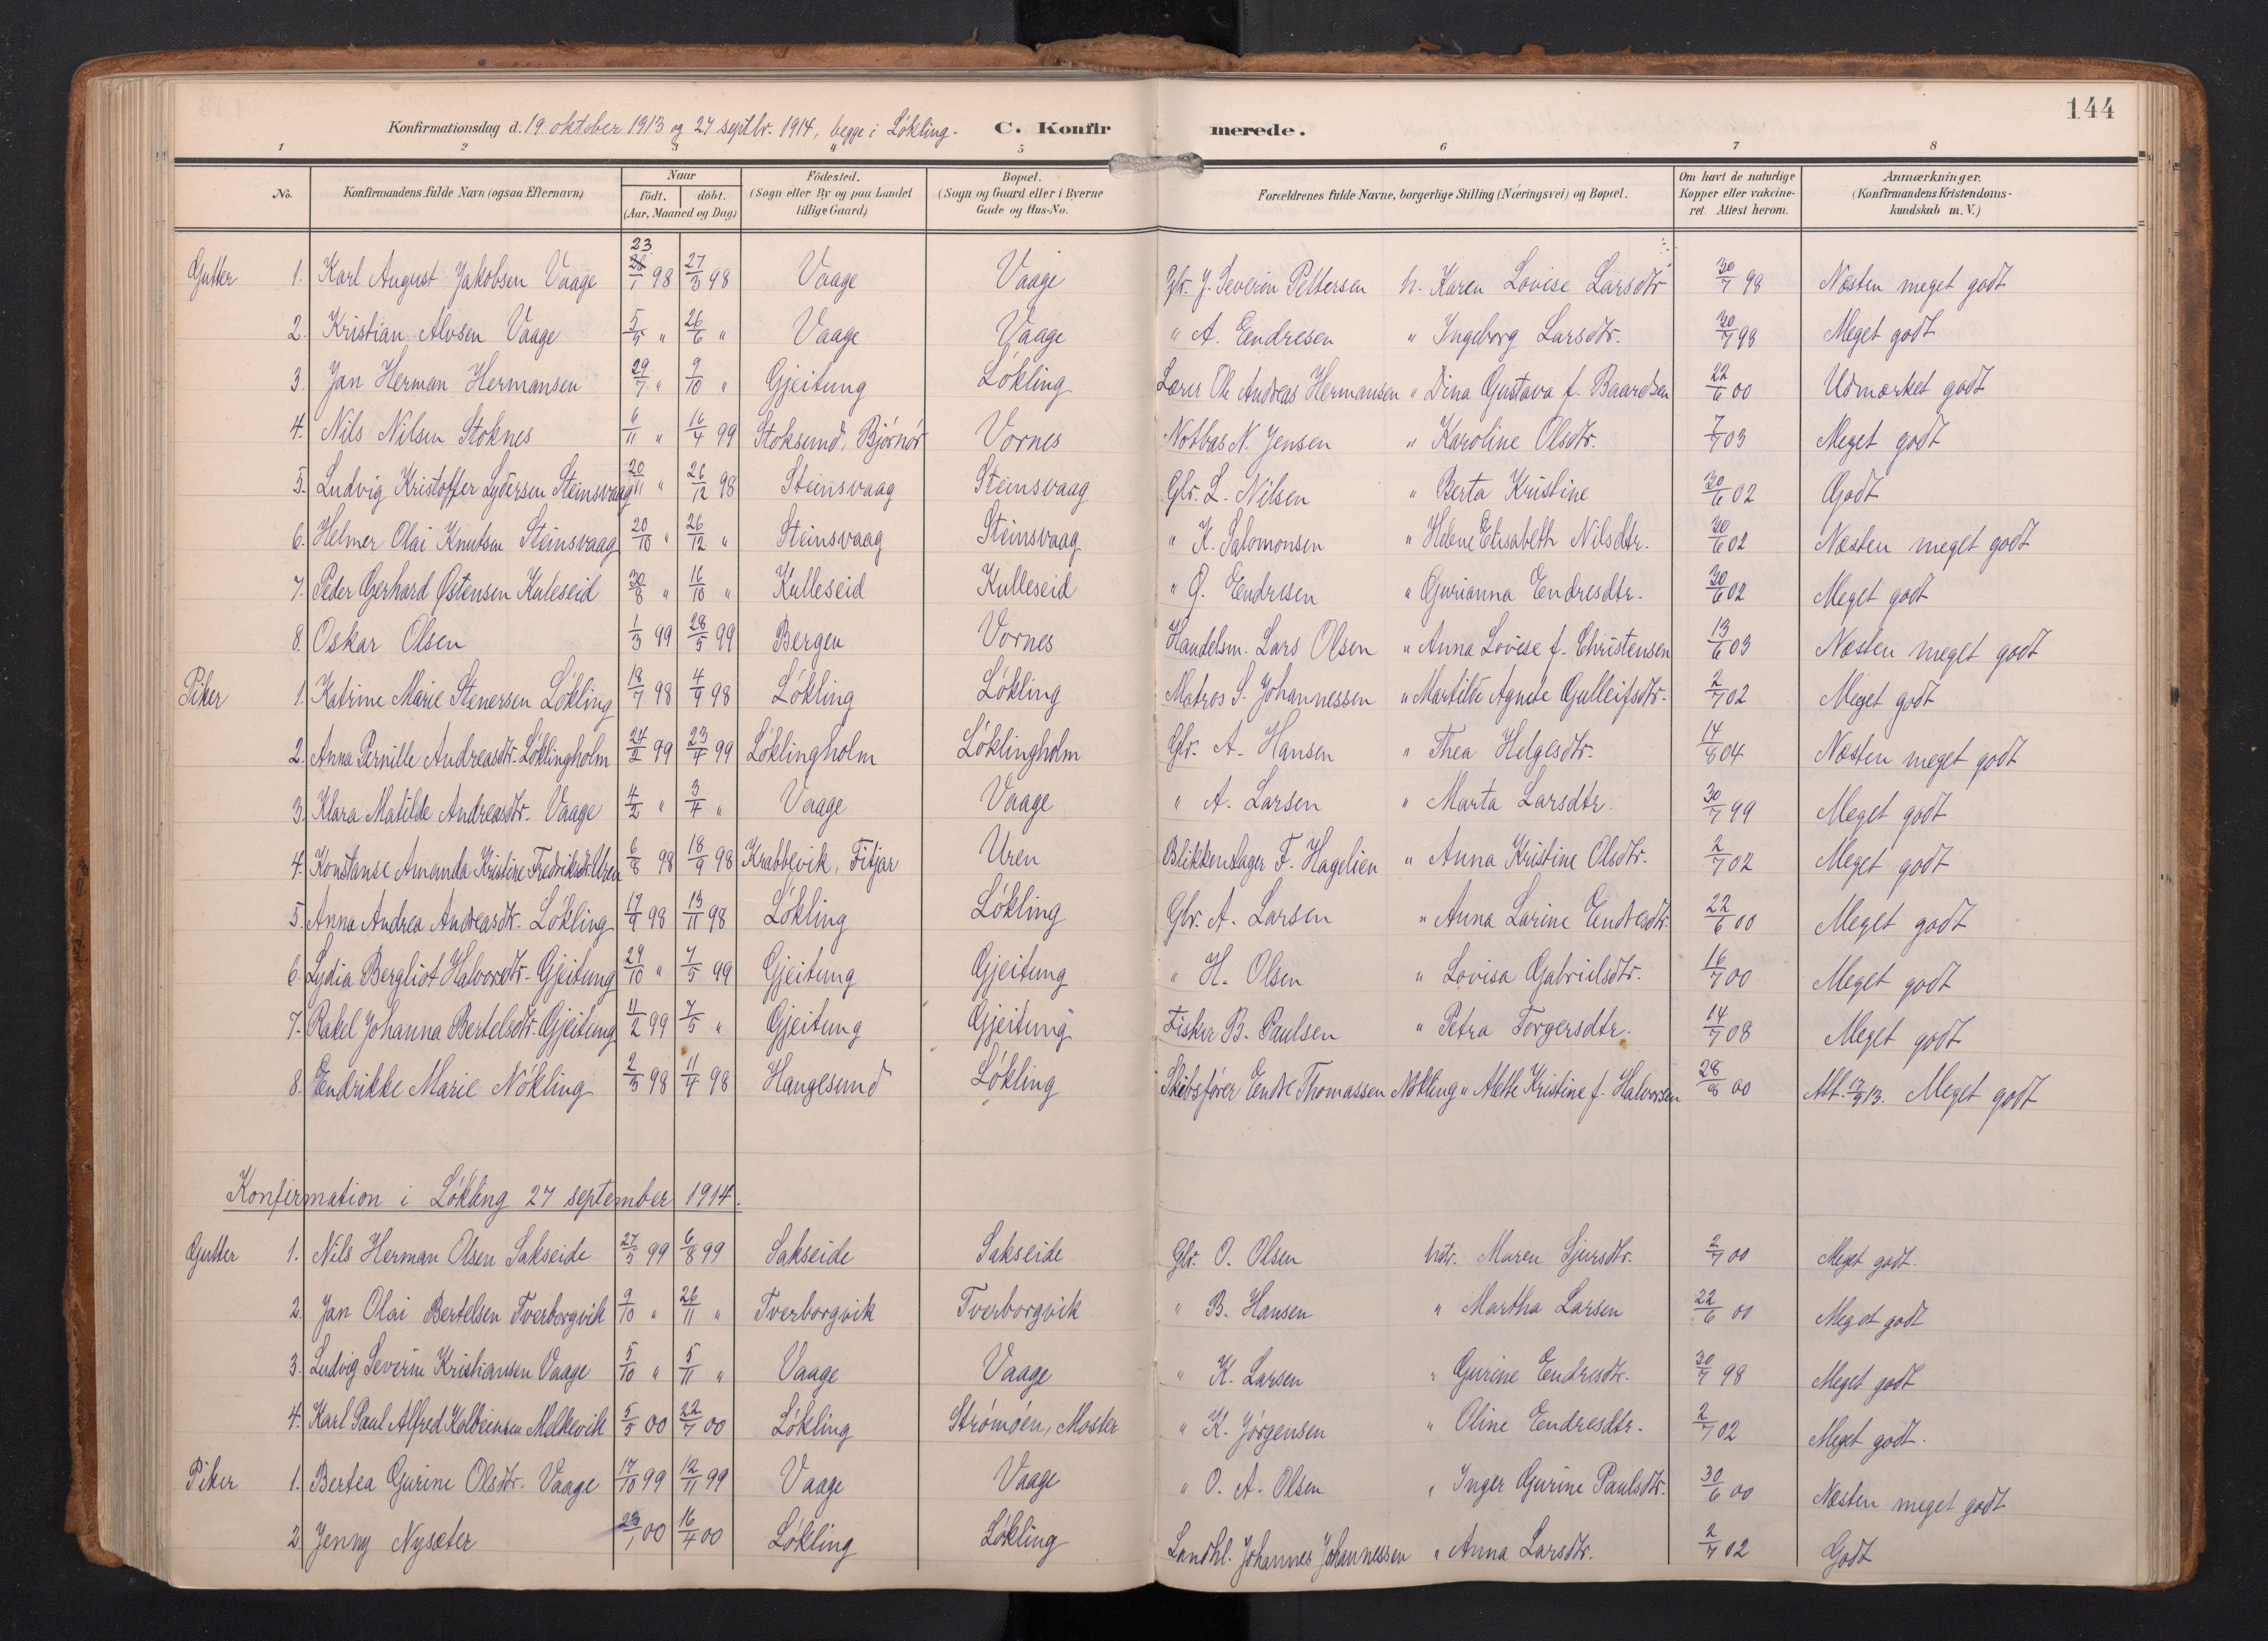 144
Konfirmationsdag d. 19 oktober 1913 og 27 septbr. 1914, begge i Løkling. C. Konfirmerede.
1 2 3 4 5 6 7 8
No. Konfirmandens fulde Navn (ogsaa Efternavn) Naar født. døbt. (Aar, Maaned og Dag) Fødested. (Sogn eller By og paa Landet tillige Gaard) Bopæl. (Sogn og Gaard eller i Byerne Gade og Hus-No. Forældrenes fulde Navne, borgerlige Stilling (Næringsvei) og Bopæl. Om havt de naturlige Kopper eller vakcineret. Attest herom. Anmærkninger. (Konfirmandens Kristendomskundskab m. V.)
Gutter 1. Karl August Jakobsen Vaage 23/1 98 27/3 98 Vaage Vaage Gbr. J. Severin Pettersen h. Karen Lovise Larsdtr 30/7 98 Næsten meget godt
2. Kristian Alvsen Vaage 5/5 " 26/6 " Vaage Vaage " A. Endresen " Ingeborg Larsdtr. 30/7 98 Meget godt
3. Jan Herman Hermansen 29/7 " 9/10 " Gjeitung Løkling Lærer Ole Andreas Hermansen " Dina Gustava f. Baardsen 22/6 00 Udmærket godt
4. Nils Nilsen Stoknes 6/11 " 16/4 99 Stoksund, Bjørnør Vornes Notbas N. Jensen " Karoline Olsdtr. 7/7 03 Meget godt
5. Ludvig Kristoffer Lydersen Steinsvaag 20/11 " 26/12 98 Steinsvaag Steinsvaag Gbr. L. Nilsen " Berta Kristine 30/6 02 Godt
6. Helmer Olai Knutsen Steinsvaag 20/10 " 26/12 " Steinsvaag Steinsvaag " K. Salomonsen " Helene Elisabeth Nilsdtr. 30/6 02 Næsten meget godt
7. Peder Gerhard Østensen Kuleseid 30/8 " 16/10 " Kulleseid Kulleseid " Ø. Endresen " Gurianna Endresdtr. 30/6 02 Meget godt
8. Oskar Olsen 1/3 99 28/5 99 Bergen Vornes Handelsm. Lars Olsen " Anna Lovise f. Christensen 13/6 03 Næsten meget godt
Piker 1. Katrine Marie Stenersen Løkling 18/7 98 4/9 98 Løkling Løkling Matros S. Johannessen " Martille Agnete Gulleifsdtr. 2/7 02 Meget godt
2. Anna Pernille Andreasdtr. Løklingholm 24/2 99 23/4 99 Løklingholm Løklingholm Gbr. A. Hansen " Thea Helgesdtr. 14/8 04 Næsten meget godt
3. Klara Matilde Andreasdtr. Vaage 4/2 " 3/4 " Vaage Vaage " A. Larsen " Marta Larsdtr. 30/7 99 Meget godt
4. Konstanse Amanda Kristine Fredriksdtr. Uren 6/8 98 18/9 98 Krabbevik, Fitjar Uren Blikkenslager F. Hagelien " Anna Kristine Olsdtr. 2/7 02 Meget godt
5. Anna Andrea Andreasdtr. Løkling 17/9 98 13/11 98 Løkling Løkling Gbr. A. Larsen " Anna Larine Endresdtr. 22/6 00 Meget godt
6. Lydia Bergliot Halvorsdtr. Gjeitung 29/10 " 7/5 99 Gjeitung Gjeitung " H. Olsen " Lovisa Gabrielsdtr. 16/7 00 Meget godt
7. Rakel Johanna Bertelsdtr. Gjeitung 11/2 99 7/5 " Gjeitung Gjeitung Fisker B. Paulsen " Petra Torgersdtr. 14/7 08 Meget godt
8. Endrikke Marie Nøkling 2/3 98 11/4 98 Haugesund Løkling Skibsfører Endre Thomassen Nøkling " Alette Kristine f. Halvorsen 28/8 00 Att. 17/9 13. Meget godt
Konfirmation i Løkling 27 september 1914.
Gutter 1. Nils Herman Olsen Sakseide 27/5 99 6/8 99 Sakseide Sakseide Gbr. O. Olsen hstr. Maren Sjursdtr. 2/7 00 Meget godt.
2. Jan Olai Bertelsen Tverborgvik 9/10 " 26/11 " Tverborgvik Tverborgvik " B. Hansen " Martha Larsen 22/6 00 Meget godt
3. Ludvig Severin Kristiansen Vaage 5/10 " 5/11 " Vaage Vaage " K. Larsen " Gurine Endresdtr. 30/7 98 Meget godt
4. Karl Paul Alfred Kolbeinsen Melkevik 5/5 00 22/7 00 Løkling Strømøen, Moster " K. Jørgensen " Oline Endresdtr. 2/7 02 Meget godt.
Piker 1. Bertea Gurine Olsdtr. Vaage 17/10 99 12/11 99 Vaage Vaage " O. A. Olsen " Inger Gurine Paulsdtr. 30/6 00 Næsten meget godt
2. Jenny Nysæter 23/1 00 16/4 00 Løkling Løkling Landhl. Johannes Johannessen " Anna Larsdtr. 2/7 02 Godt